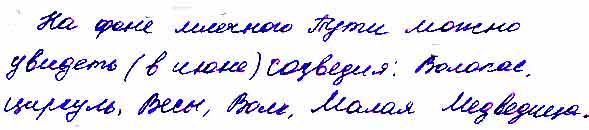 На фоне млечного Пути можно
увидеть (в июне) созведия: Волопас,
циркуль, Весы, Волк, Малая Медведица.